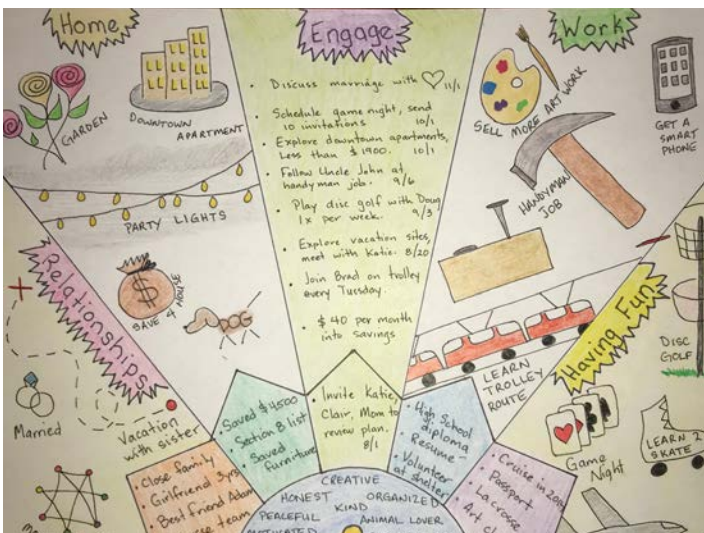 Home
GARDEN
DOWNTOWN
APARTMENT
PARTY LIGHTS
SAVE 4 HOUSE
DOG
Engage
• Discuss marriage with 11/1
• Schedule game night, send
10 invitations 10/1
• Explore downtown apartments,
Less than $1900. 10/1
• Follow Uncle John at
handyman job. 9/6
• Play disc golf with Doug
1x per week. 9/3
• Explore vacation sites,
meet with Katie. 8/20
• Join Brad on trolley
every Tuesday.
• $40 per month
into savings
Work
SELL MORE ARTWORK
GET A
SMART
PHONE
HANDYMAN
JOB
LEARN
TROLLEY
ROUTE
Relationships
Married
Vacation
with sister
Having Fun
DISC
GOLF
Game
Night
LEARN 2
SKATE
• Close family
• Girlfriend 3yrs
• Best friend Adam
team
• Saved $4500
• Section 8 list
• Saved
furniture
• Invite Katie,
Clair, Mom to
review plan.
8/1
• High School
diploma
• Resume-
• Volunteer
at shelter
• Cruise in
• Passport
• Lacrosse
• Art
CREATIVE
HONEST ORGANIZED
KIND
PEACEFUL ANIMAL LOVER
MOTIVATED